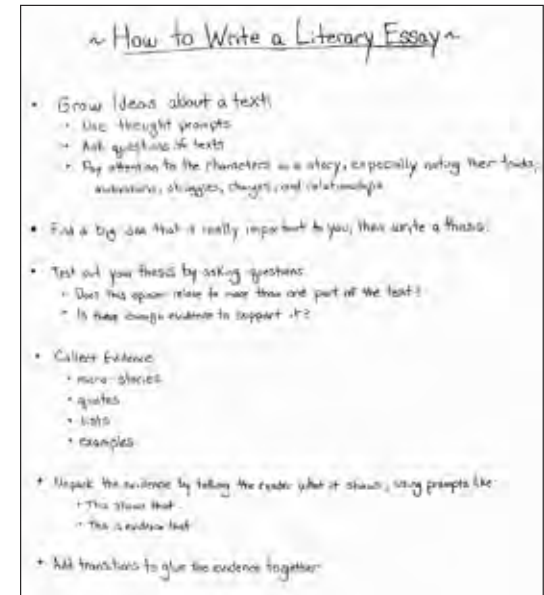 ~ How to Write a Literary Essay ~
• Grow Ideas about a text:
• Use thought prompts
• Ask questions of texts
• Pay attention to the characters in a story, especially noting their traits,
motivations, struggles, changes, and relationships
• Find a big idea that is really important to you, then write a thesis.
• Test out your thesis by asking questions
• Does this opinion relate to more than one part of the text?
• Is there enough evidence to support it?
• Collect Evidence
• micro-stories
• quotes
• lists
• examples
• Unpack the evidence by telling the reader what it shows, using prompts like
• This shows that
• This is evidence that
• Add transitions to glue the evidence together